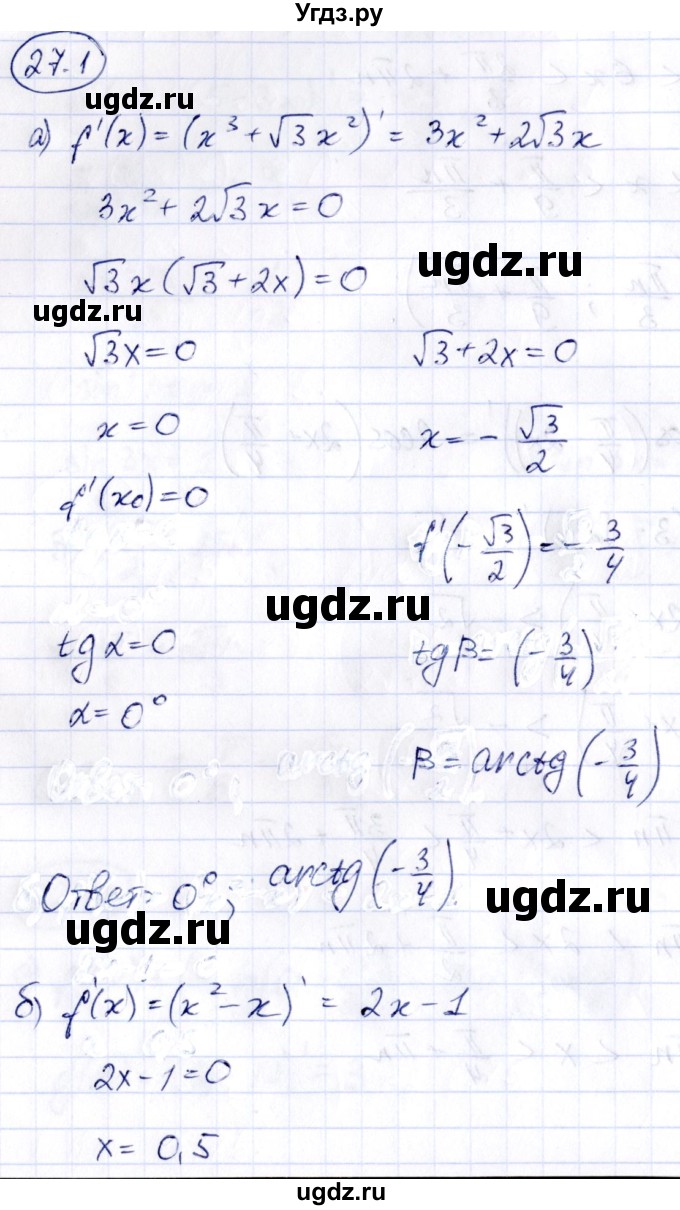 Угдз.ру
27.1
ugdz.ru
а) f'(x) = (x³ + √3x²)' = 3x² + 2√3x
3x² + 2√3x = 0
ugdz.ru
√3x(√3 + 2x) = 0
ugdz.ru
√3x = 0 √3 + 2x = 0
x = 0 x = -√3/2
f'(x₀) = 0
f'(-√3/2) = -3/4
ugdz.ru
tgα = 0 tgβ = (-3/4)
α = 0°
β = arctg(-3/4)
Ответ: 0°; arctg(-3/4).
ugdz.ru
ugdz.ru
б) f'(x) = (x² - x)' = 2x - 1
2x - 1 = 0
x = 0,5
ugdz.ru